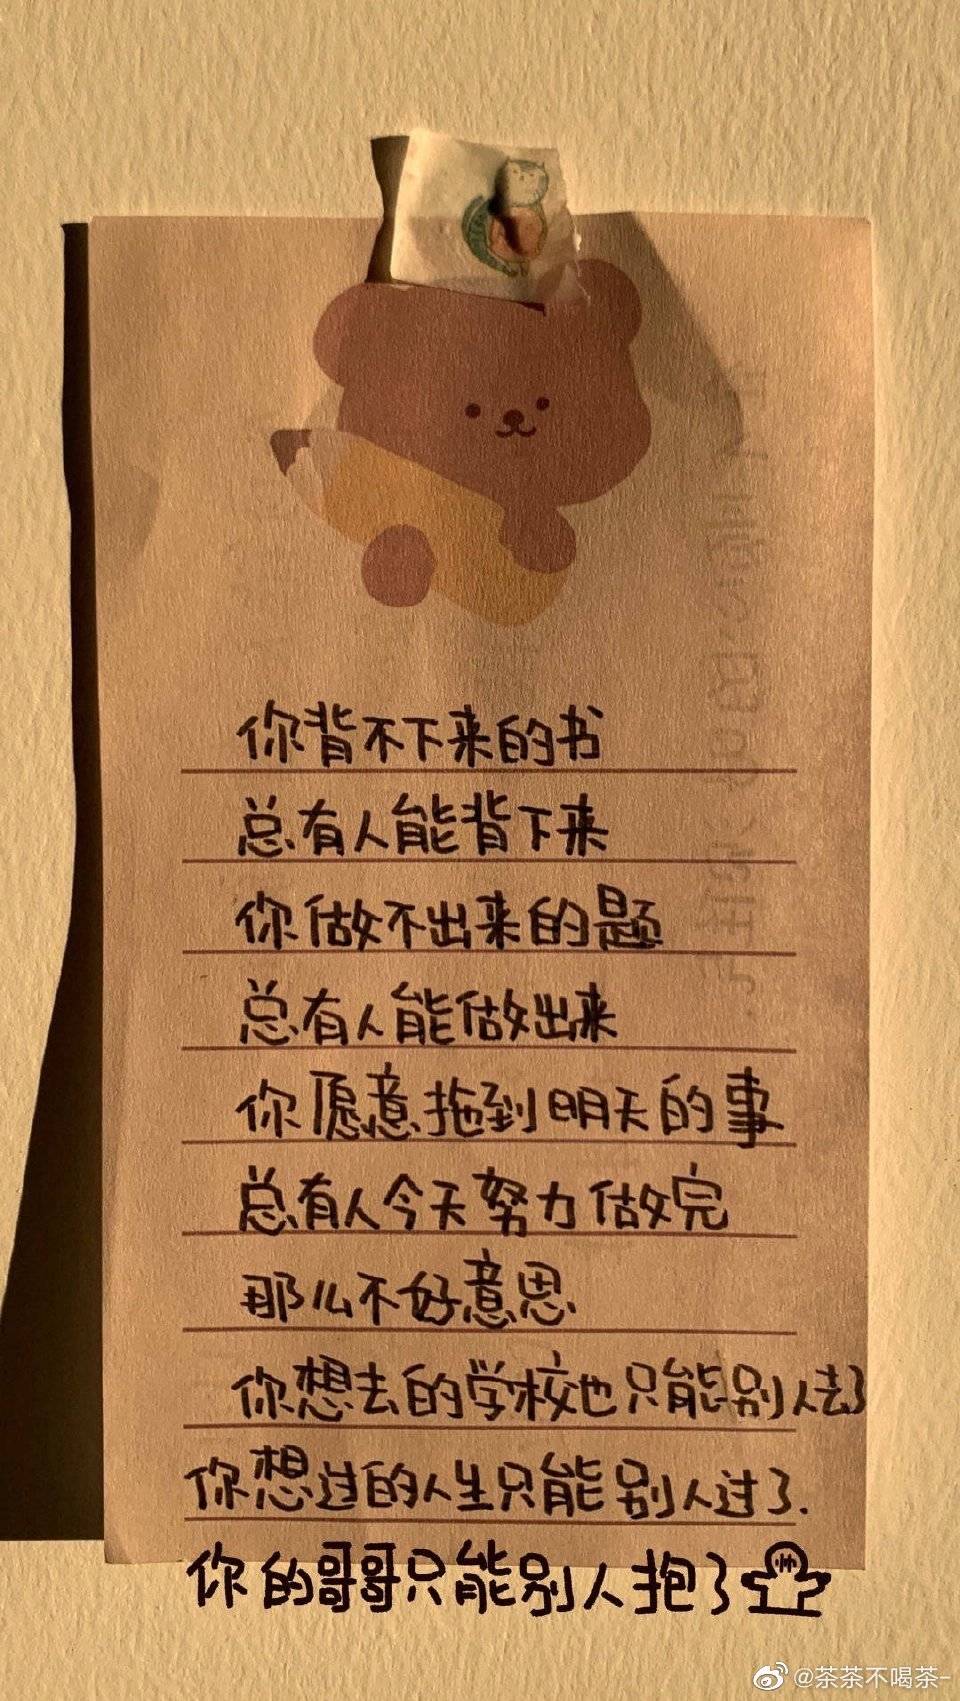 你背不下来的书
总有人能背下来
你做不出来的题
总有人能做出来
你愿意拖到明天的事
总有人今天努力做完
那么不好意思
你想去的学校也只能别人去了
你想过的人生只能别人过了.
你的哥哥只能别人抱了
@茶茶不喝茶-